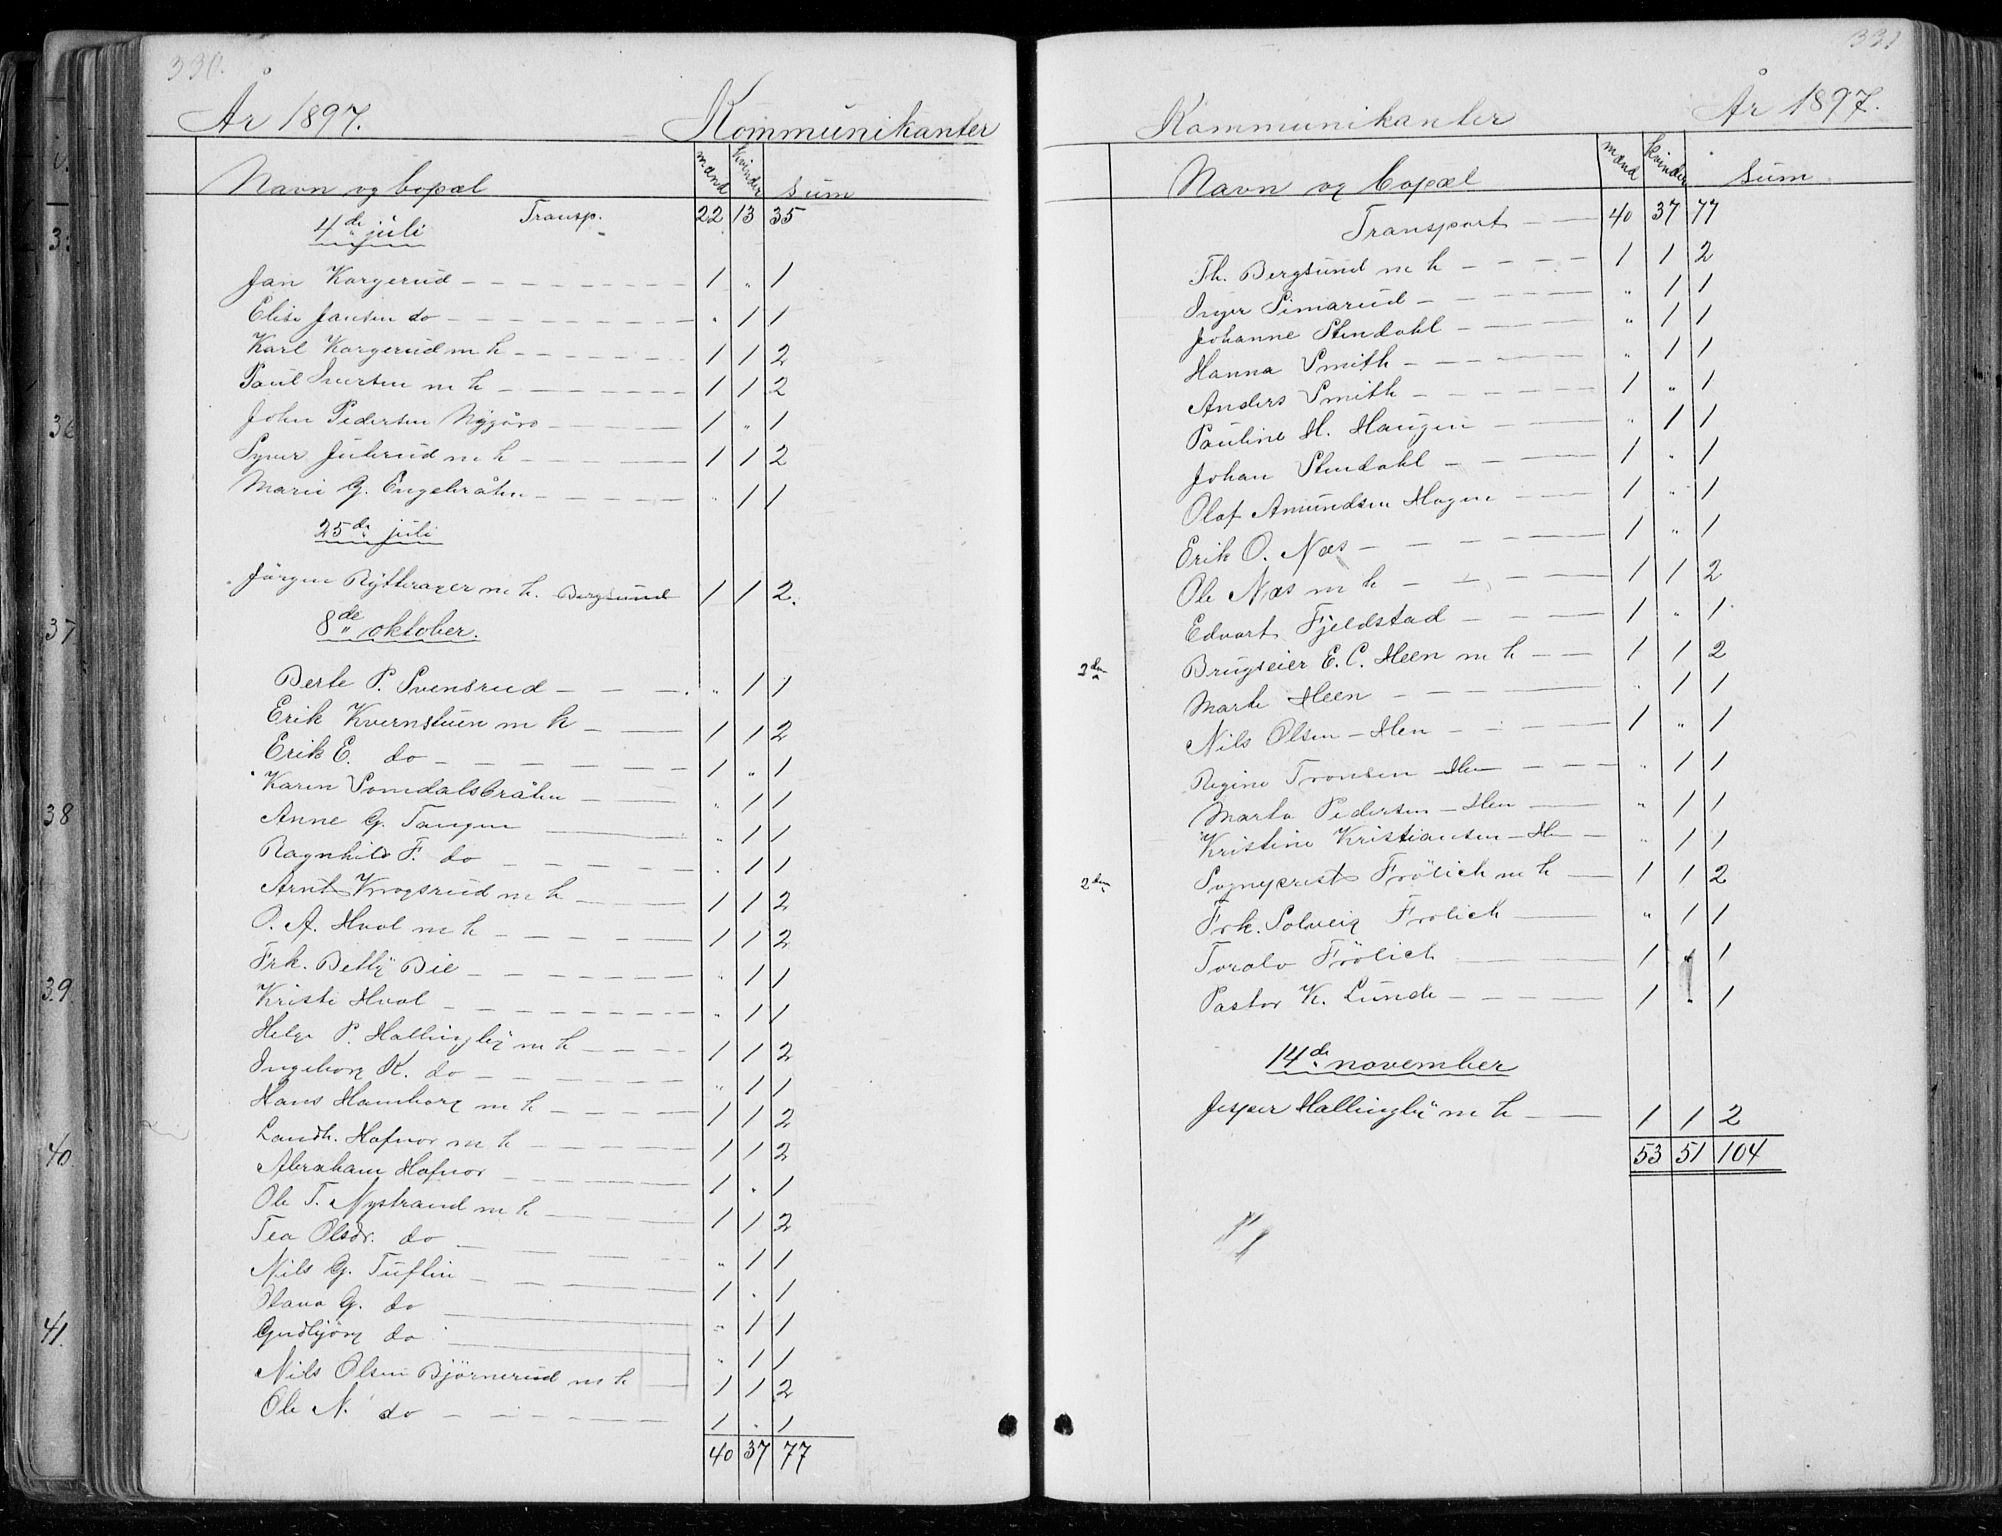 330.
År 1897. Kommunikanter
Navn og bopæl mænd kvinder sum
4de juli Transp. 22 13 35
Jan Korgerud 1 " 1
Elise Jansen do " 1 1
Karl Korgerud m h 1 1 2
Paul Iversen m h 1 1 2
John Pedersen 1 " 1
Syver Juberud m h 1 1 2
Marie G. Engebråten " 1 1
25de juli
Jörgen Rytterager m h. Bergsund 1 1 2.
8de oktober.
Berte P. Svensrud " 1 1
Erik Kvernstuen m h 1 1 2
Erik E. do 1 " 1
Karen Somdalsbråten " 1 1
Anne G. Tangen " 1 1
Ragnhild F. do " 1 1
Arnt Knogsrud m h 1 1 2
O. A. Hval m h 1 1 2
Frk. Betty Bie " 1 1
Kristi Hval " 1 1
Helge P. Hallingby m h 1 1 2
Ingeborg K. do " 1 1
Hans Hamborg m h 1 1 2
Landh. Hafnor m h 1 1 2
Abraham Hafnor 1 " 1
Ole T. Nystrand m h 1 1 2
Tea Olsdr. do " 1 1
Nils G. Tuftin 1 " 1
G. do " 1 1
Gudbjörg do " 1 1
Nils Olsen Björnerud m h 1 1 2
Ole N. do 1 " 1
40 37 77
331
Kommunikanter År 1897.
Navn og bopæl mænd kvinder sum
Transport 40 37 77
Th. Bergsund m h 1 1 2
Inger Simarud " 1 1
Johanne Stendahl " 1 1
Hanna Smith " 1 1
Anders Smith 1 " 1
Pauline H. Haugen " 1 1
Johan Stendahl 1 " 1
Olaf Amundsen Hagen 1 " 1
Erik O. Næs 1 " 1
Ole Næs m h 1 1 2
Edvart Fjeldstad 1 " 1
Brugseier E. C. Heen m h 1 1 2
Marte Heen " 1 1
Nils Olsen – Hen 1 " 1
Regine Tronsen Hen " 1 1
Marta Pedersen – Hen " 1 1
Kristine Kristiansen – Hen " 1 1
2den Sogneprest Frölich m h 1 1 2
Frk. Solveig Frölich " 1 1
Toralv Frölich 1 " 1
Pastor K. Lunde 1 " 1
14de november
Jesper Hallingby m h 1 1 2
53 51 104
33
36
37
38
39.
40
41.